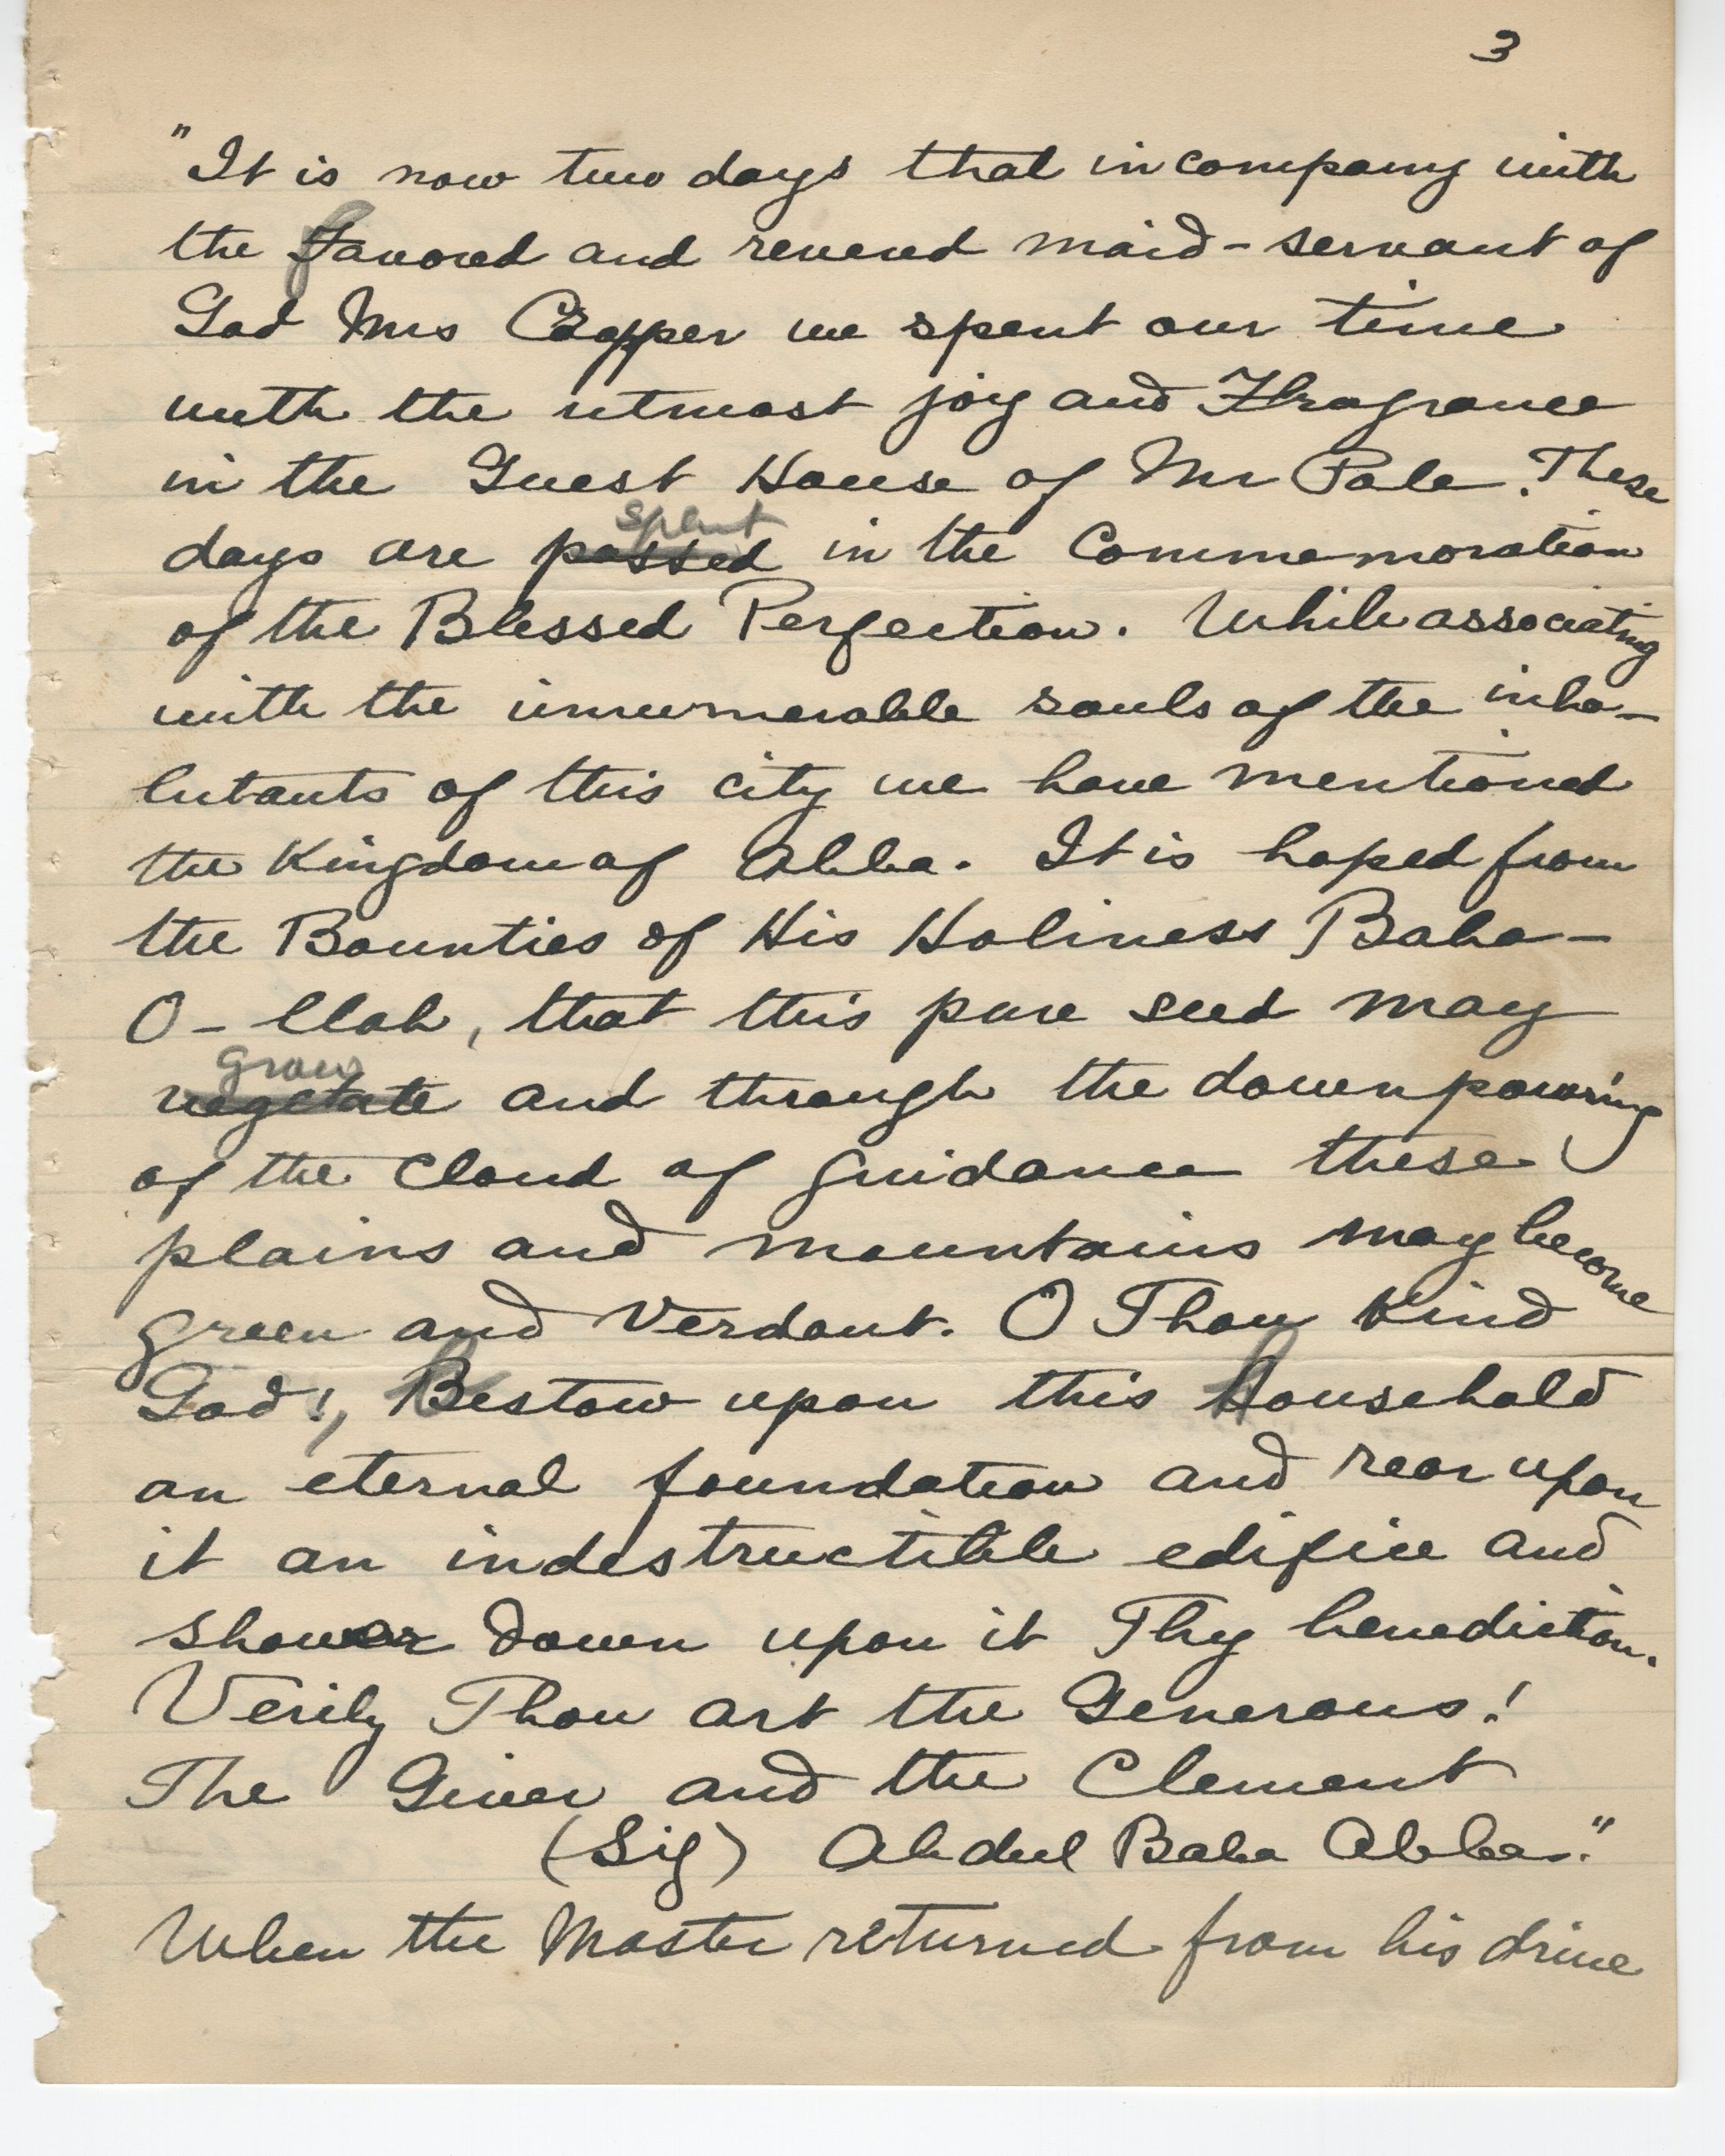 3
"It is now two days that in company with
the favored and revered maid-servant of
God Mrs Cropper we spent our time
with the utmost joy and Fragrance
in the Guest House of Mr Pole. These
spent
days are passed in the Commemoration
of the Blessed Perfection. While associating
with the innumerable souls of the inha-
bitants of this city we have mentioned
the Kingdom of Abha. It is hoped from
the Bounties of His Holiness Baha-
O-llah, that this pure seed may
grow
vegetate and through the downpouring
of the Cloud of Guidance these
plains and mountains may become
green and Verdant. O Thou Kind
God!, Bestow upon this household
an eternal foundation and rear upon
it an indestructible edifice and
shower down upon it Thy benediction.
Verily Thou art the Generous!
The Giver and the Clement
(Sig) Abdul Baha Abbas."
When the Master returned from his drive